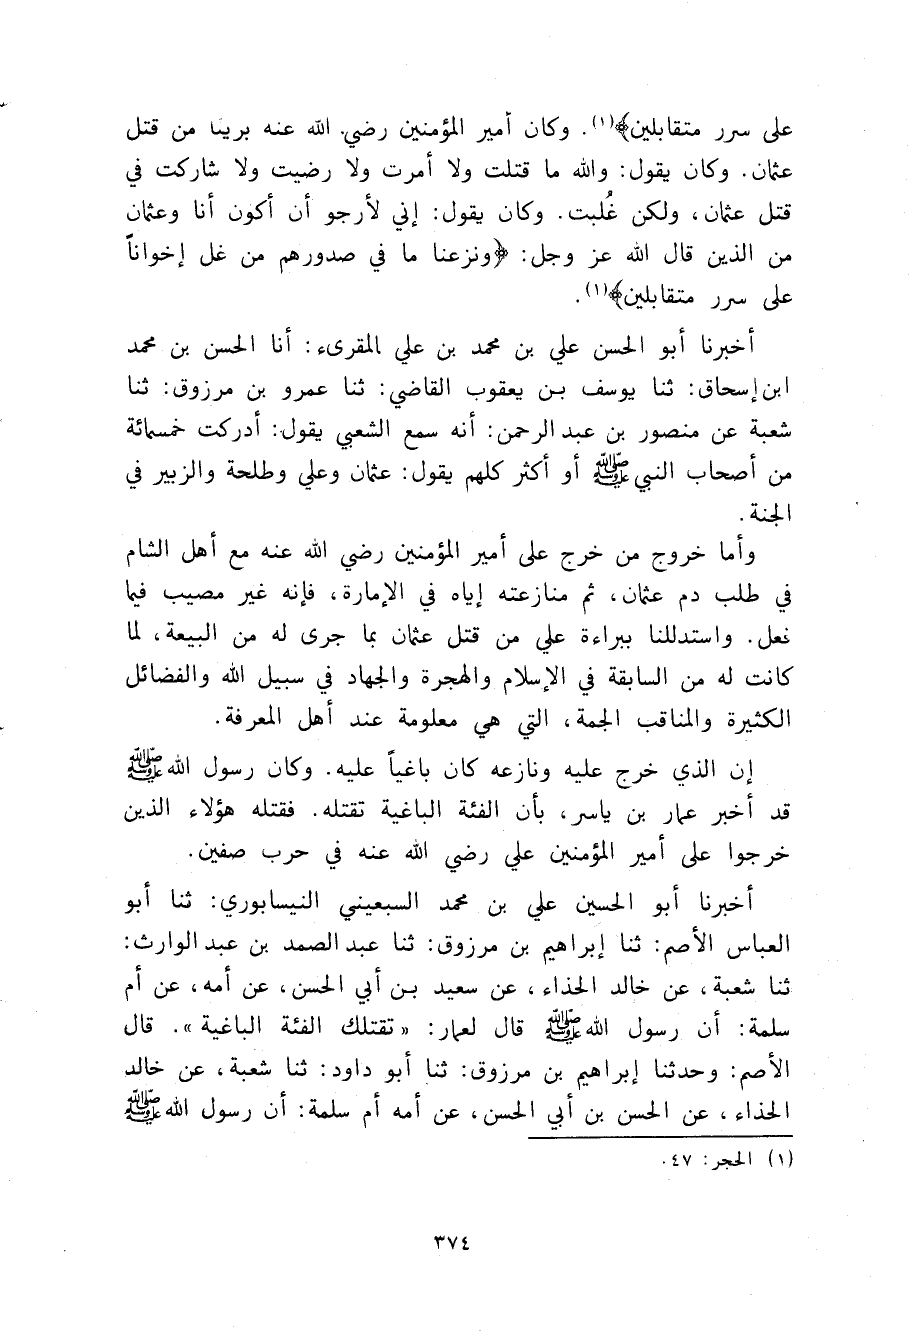 على سرر متقابلين﴾(١). وكان أمير المؤمنين رضي الله عنه بريئا من قتل
عثمان. وكان يقول: والله ما قتلت ولا أمرت ولا رضيت ولا شاركت في
قتل عثمان، ولكن غُلبت. وكان يقول: إني لأرجو أن أكون أنا وعثمان
من الذين قال الله عز وجل: ﴿ونزعنا ما في صدورهم من غل إخواناً
على سرر متقابلين﴾(١).
أخبرنا أبو الحسن علي بن محمد بن علي المقرىء: أنا الحسن بن محمد
ابن إسحاق: ثنا يوسف بن يعقوب القاضي: ثنا عمرو بن مرزوق: ثنا
شعبة عن منصور بن عبد الرحمن: أنه سمع الشعبي يقول: أدركت خمسمائة
من أصحاب النبي ﷺ أو أكثر كلهم يقول: عثمان وعلي وطلحة والزبير في
الجنة.
وأما خروج من خرج على أمير المؤمنين رضي الله عنه مع أهل الشام
في طلب دم عثمان، ثم منازعته إياه في الإمارة، فإنه غير مصيب فيما
فعل. واستدللنا ببراءة علي من قتل عثمان بما جرى له من البيعة، لما
كانت له من السابقة في الإسلام والهجرة والجهاد في سبيل الله والفضائل
الكثيرة والمناقب الجمة، التي هي معلومة عند أهل المعرفة.
إن الذي خرج عليه ونازعه كان باغياً عليه. وكان رسول الله ﷺ
قد أخبر عمار بن ياسر، بأن الفئة الباغية تقتله. فقتله هؤلاء الذين
خرجوا على أمير المؤمنين علي رضي الله عنه في حرب صفين.
أخبرنا أبو الحسين علي بن محمد السبعيني النيسابوري: ثنا أبو
العباس الأصم: ثنا إبراهيم بن مرزوق: ثنا عبد الصمد بن عبد الوارث:
ثنا شعبة، عن خالد الحذاء، عن سعيد بن أبي الحسن، عن أمه، عن أم
سلمة: أن رسول الله ﷺ قال لعمار: « تقتلك الفئة الباغية ». قال
الأصم: وحدثنا إبراهيم بن مرزوق: ثنا أبو داود: ثنا شعبة، عن خالد
الحذاء، عن الحسن بن أبي الحسن، عن أمه أم سلمة: أن رسول الله ﷺ
(١) الحجر: ٤٧.
٣٧٤